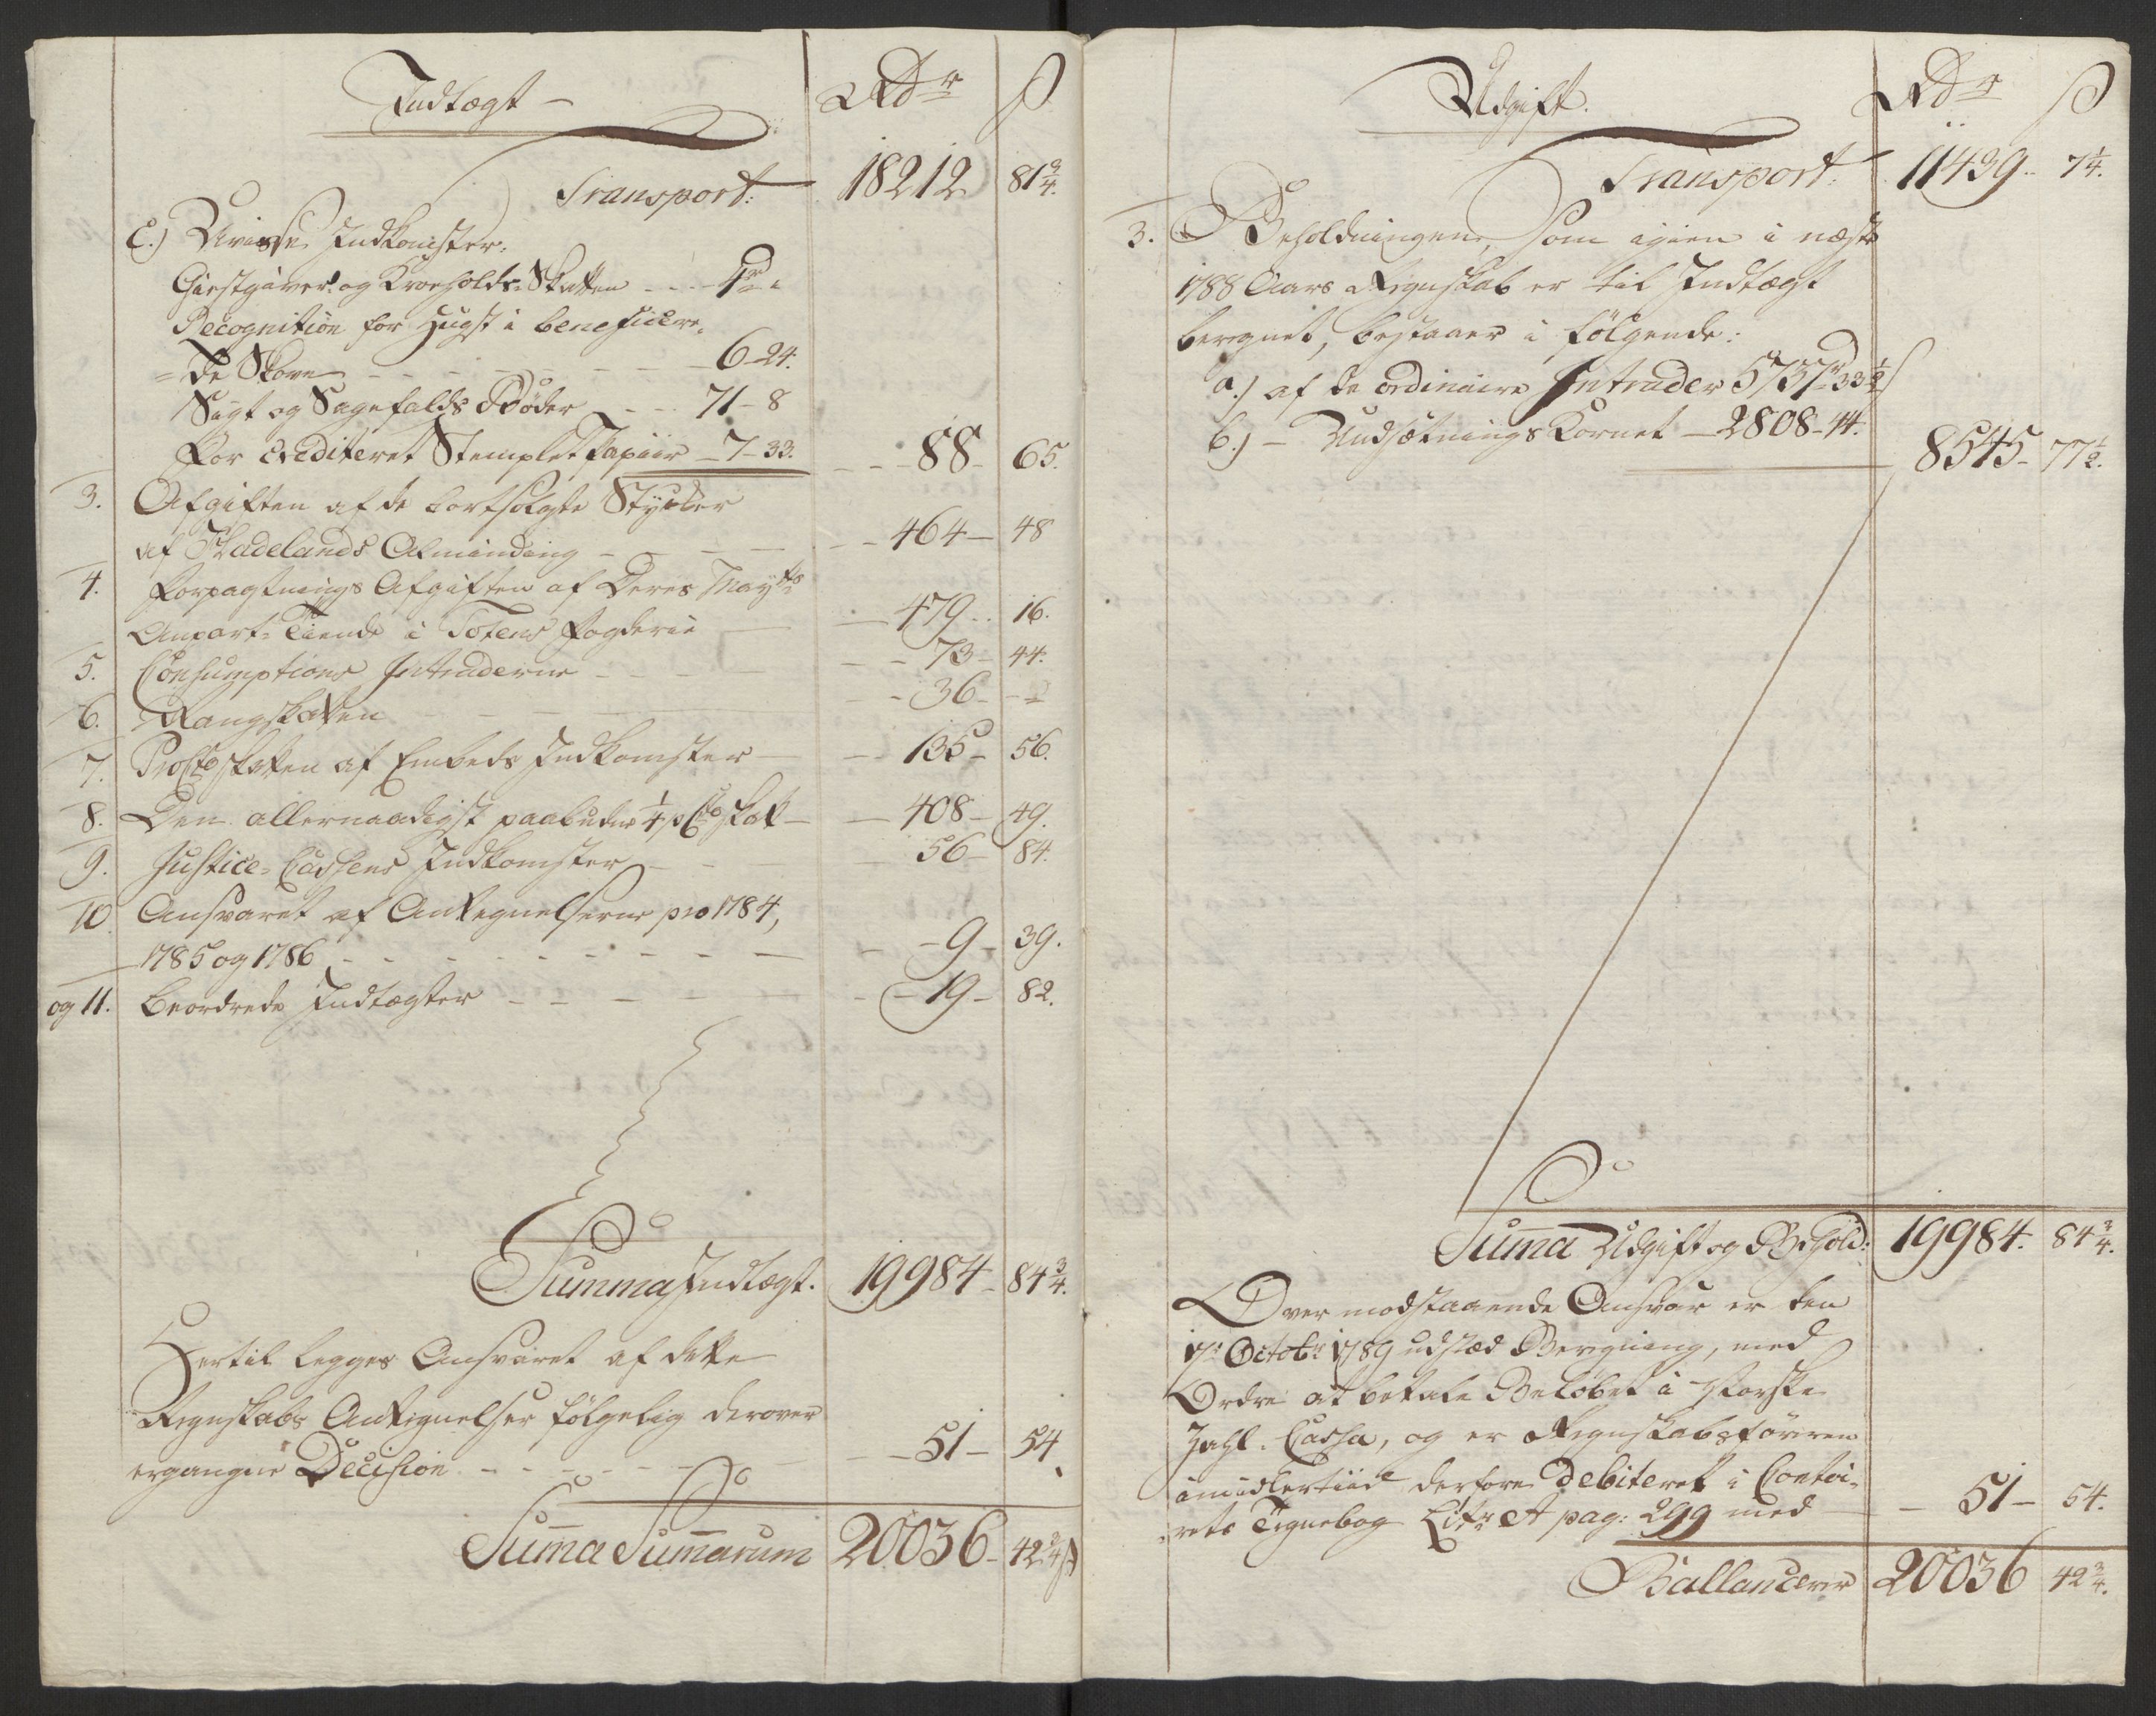 Indtægt — Rdr ß
Transport: 18212 81¾.
C.) Uvisse Indkomster.
Giestgiver- og Kroeholds-Skatten - - - 4rd "
Recognition for Hugst i beneficere-
=de Skove - - - - - - 6 - 24.
Sigt og Sagefalds Bøder - - - 71 - 8
For Crediteret Stemplet Papiir - 7 - 33. - - - 88 - 65.
3. Afgiften af de bortsolgte Stycker
af Hadelands Alminding - - - - - - 464 - 48
4. Forpagtnings Afgiften af Deres Mayts
Anpart-Tiende i Totens Fogderie - — 479.. 16.
5. Consumptions Intraderne - - - - - 73 - 44.
6. Rangskatten - - - - - 36 - - -
7. Procto skatten af Embeds Indkomster - - - 135 - 56.
8. Den allernaadigst paabudne ¼ pCto skat - — 408 - 49.
9. Justice-Cassens Indkomster - - — 56 - 84.
10. Ansvaret af Antegnelserne pro 1784,
1785 og 1786 - - - - - - - - - 9 - 39.
og 11. Beordrede Indtægter - - - - - - 19 - 82.
Summa Indtægt. 19984 - 84¾.
Hertil legges Ansvaret af dette
Regnskabs Antegnelser følgelig derover
ergangne Decision - - - - - - - 51 - 54.
Summa Summarum 20036 - 42¾ ß
Udgift. Rdr ß
Transport: 11439.. 7¼.
3. Beholdningen, som igien i næste
1788 Aars Regnskab er til Indtægt
beregnet, bestaaer i følgende:
a.) af de ordinaire Intrader 5737rd 33½ ß
b.) — Udsætnings Kornet — 2808 - 44. 8545 - 77½.
Suma Udgift og Behold: 19984. 84¾.
Over modstaaende Ansvar er den
17de Octobr 1789 udstæd Beregning, med
Ordre at betale Beløbet i Norske
Zahl-Cassa, og er Regnskabsføreren
imidlertiid derfore Debiteret i Contoi-
rets Tegnebog Litr A pag: 299 med — 51 - 54.
Ballancerer 20036 42¾.